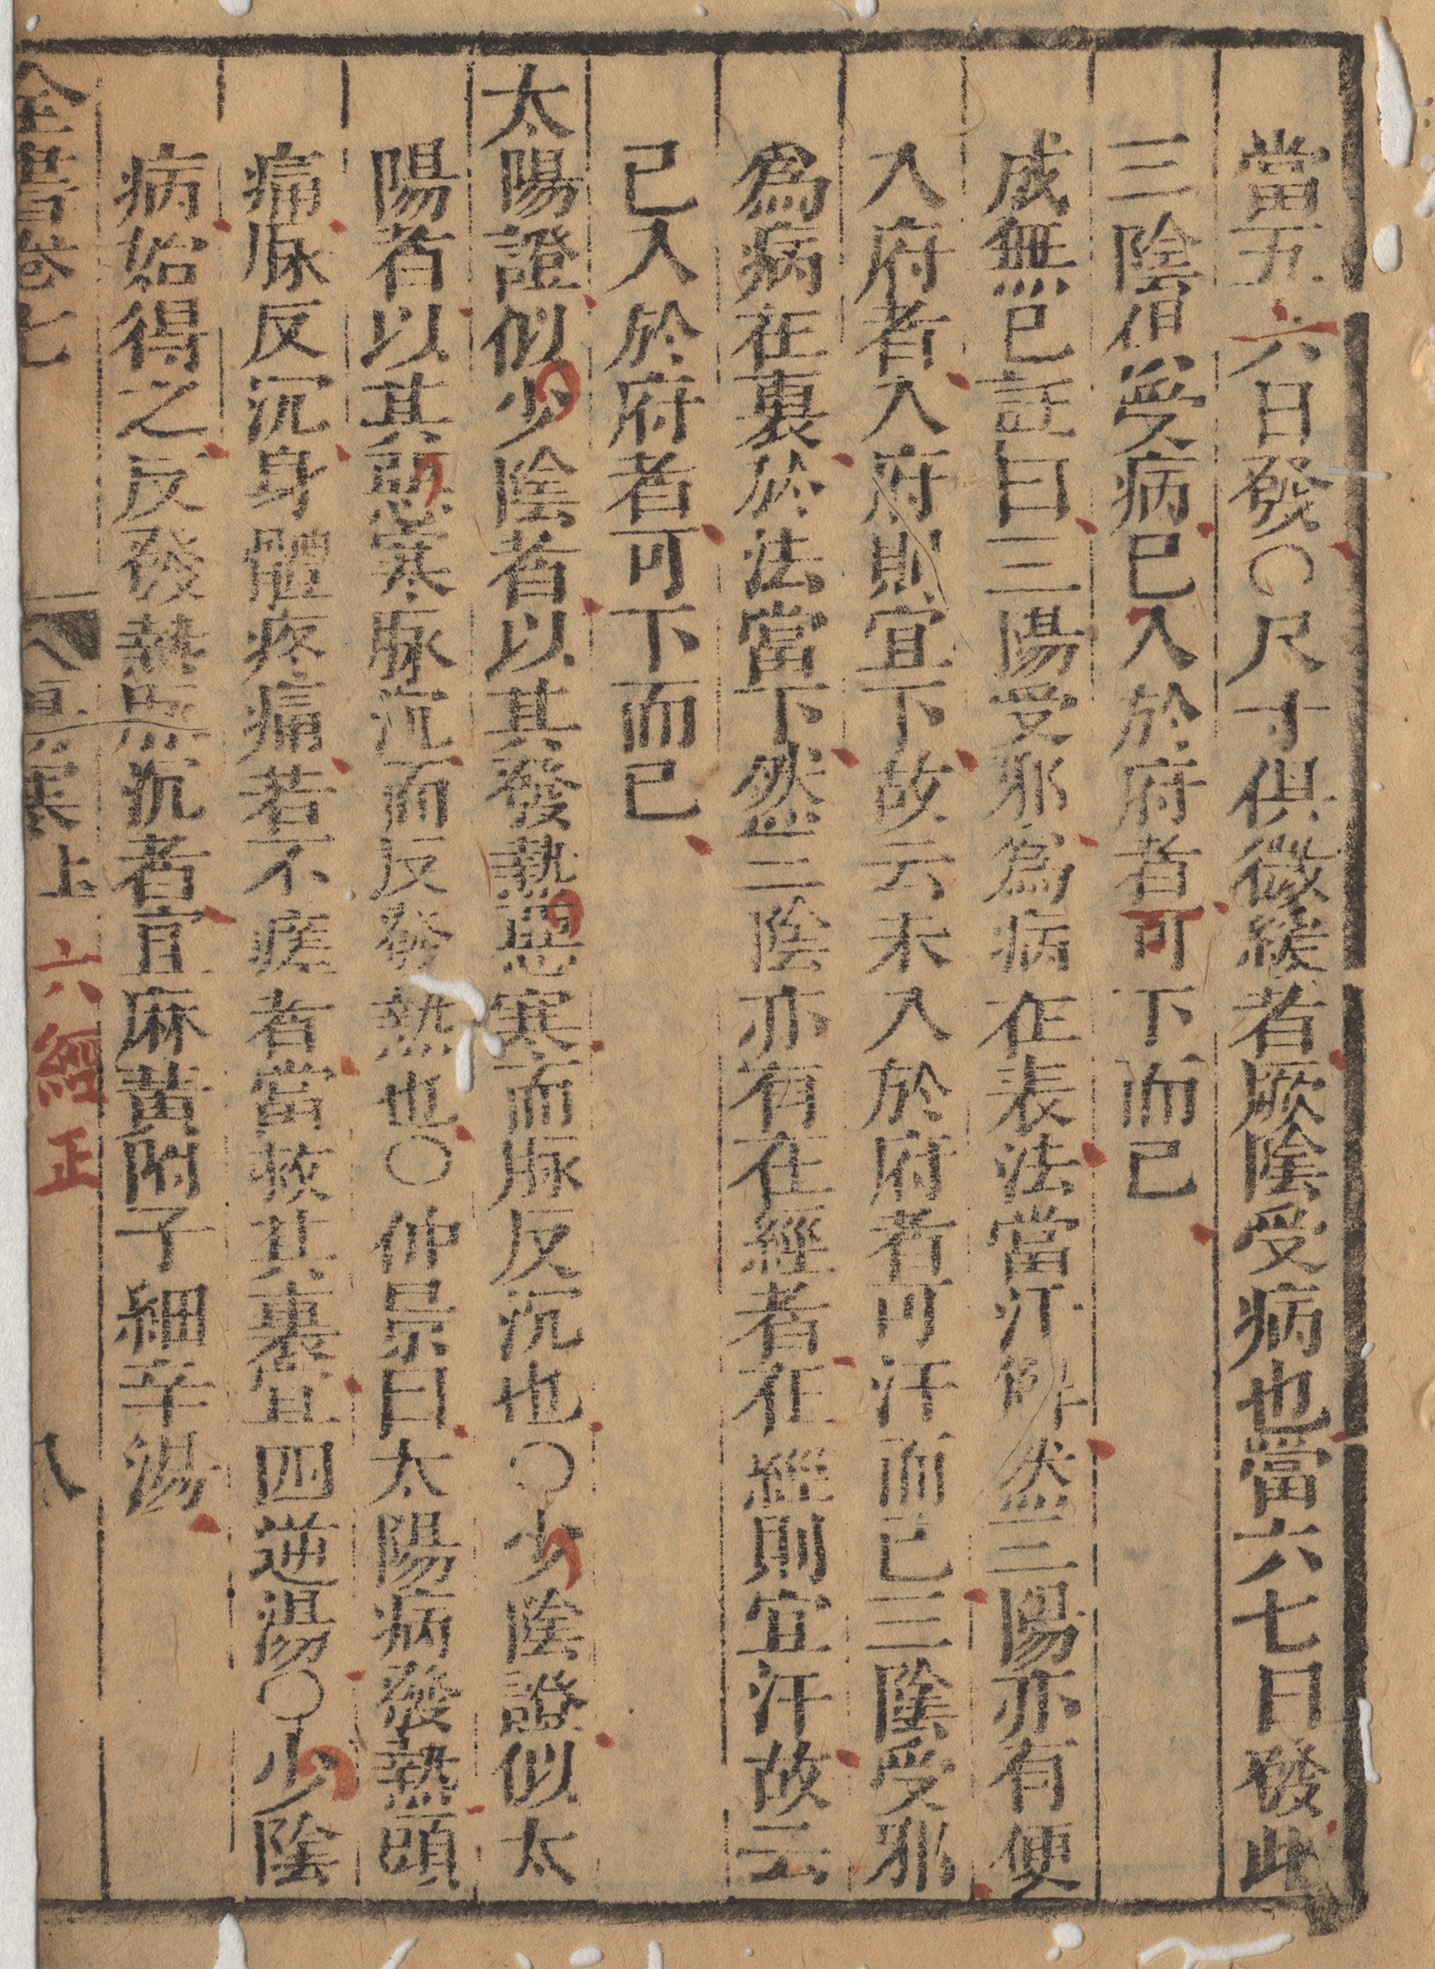 當五六日發○尺寸俱微緩者厥陰受病也當六七日發此
三陰俱受病已入於府者可下而已
成無已註曰三陽受邪爲病在表法當汗解然三陽亦有便
入府者入府則宜下故云未入於府者可汗而已三陰受邪
爲病在裏於法當下然三陰亦有在經者在經則宜汗故云
已入於府者可下而已
太陽證似少陰者以其發熱惡寒而脉反沉也○少陰證似太
陽者以其惡寒脉沉而反發熱也○仲景曰太陽病發熱頭
痛脉反沉身體疼痛若不瘥者當救其裏宜四逆湯○少陰
病始得之反發熱脉沉者宜麻黃附子細辛湯
全書卷七 傷寒上 六經正 八